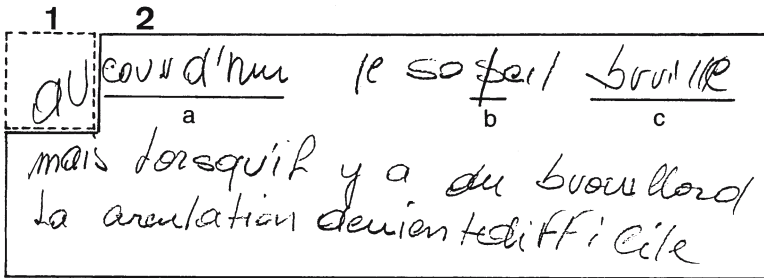 1 2
au courd'hui le soleil brille
a b c
mais lorsqu'il y a du brouillard
La circulation devient difficile